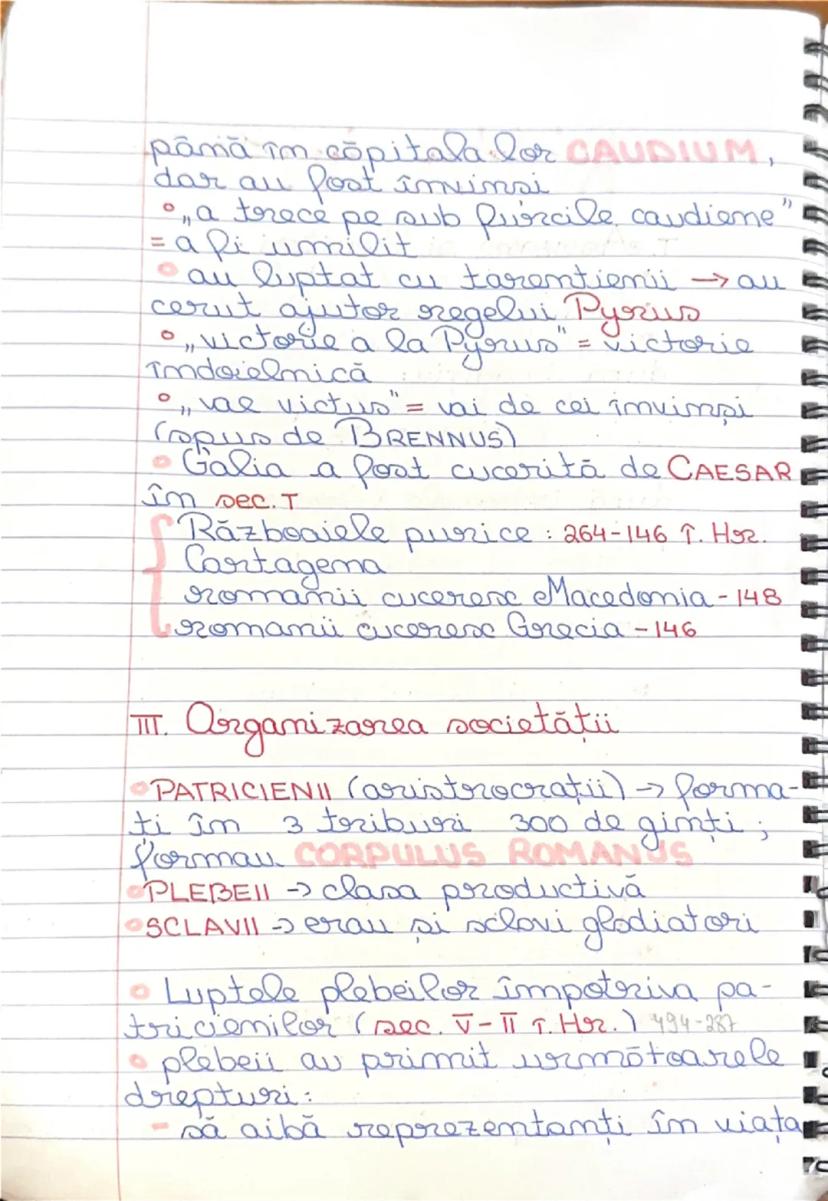 până în căpitala lor CAUDIUM,
dar au fost învinși
„a trece pe sub furcile caudiene"
= a fi umilit
au luptat cu tarentienii → au
cerut ajutor regelui Pyrius
„victorie a la Pyrus" = victorie
îndoielnică
„vae victus" = vai de cei învinși
(spus de BRENNUS)
Galia a fost cucerită de CAESAR
în sec. I
Războaiele punice : 264-146 î. Hr.
Cartagena
romanii cuceresc Macedonia - 148
romanii cuceresc Grecia - 146
III. Organizarea societății
PATRICIENII (aristrocrații) → forma-
ti în 3 triburi 300 de ginți ;
formau CORPULUS ROMANUS
PLEBEII → clasa productivă
SCLAVII → erau și sclavi glodiatori
Luptele plebeilor împotriva pa-
tricienilor (sec. V - II î. Hr.) 494-287
plebeii au primit următoarele
drepturi:
- să aibă reprezentanți în viața